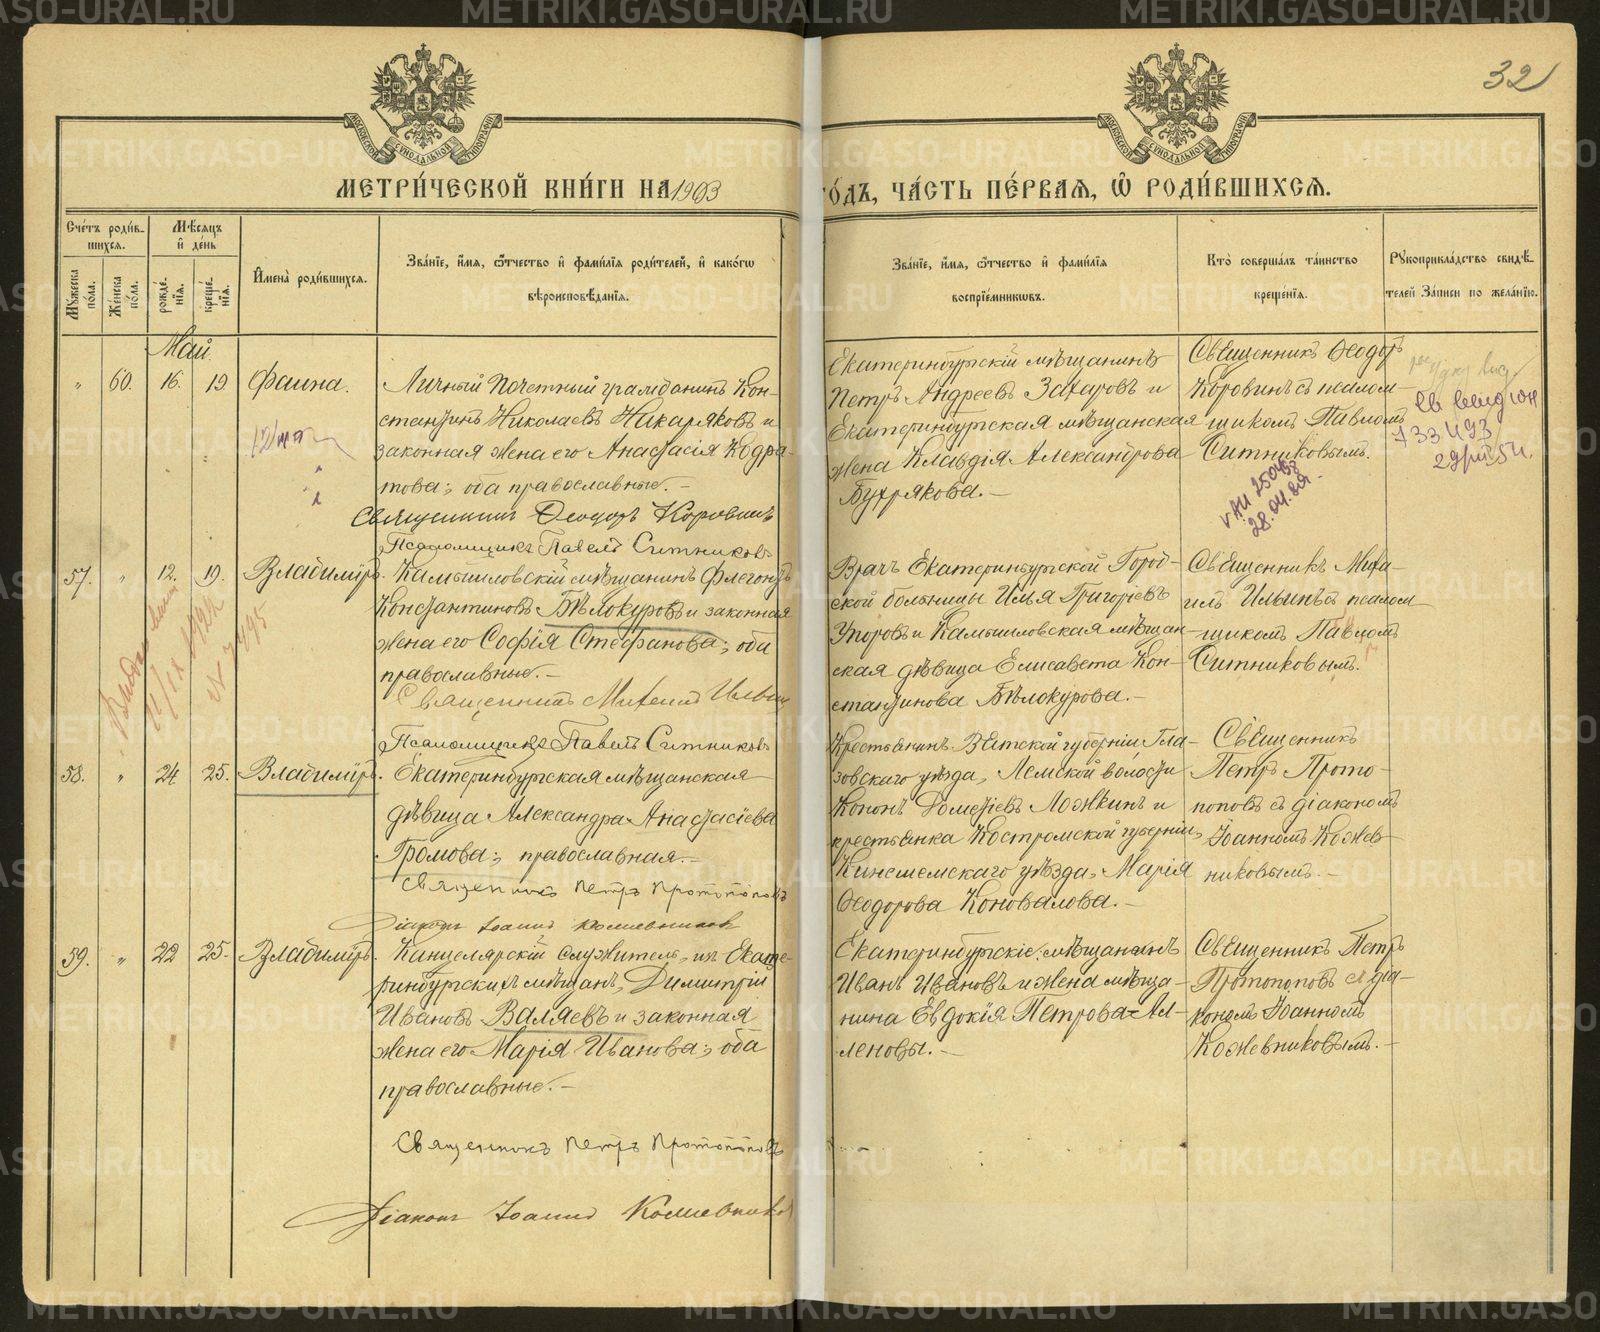 32
МЕТРИ́ЧЕСКОЙ КНИ́ГИ НА 1903 ГО́ДЪ, ЧА́СТЬ ПЕ́РВАЯ, Ѽ РОДИ́ВШИХСЯ.
МОСКОВСКОЙ СѴНОДАЛЬНОЙ ТИПОГРАФІИ
МОСКОВСКОЙ СѴНОДАЛЬНОЙ ТИПОГРАФІИ
Сче́тъ роди́в-
шихся.
Мꙋ́жеска по́ла.
Же́нска по́ла.
Мѣ́сяцъ
и҆ де́нь
рожде́-
нїя.
креще́-
нїя.
И҆мена̀ роди́вшихся.
Зва́нїе, и҆́мя, ѻ҆́тчество и҆ фамѝлїя роди́телей, и҆ како́гѡ
вѣроисповѣ́данїя.
Зва́нїе, и҆́мя, ѻ҆́тчество и҆ фами́лїя
воспрїе́мникѡвъ.
Кто̀ соверша́лъ та́инство
креще́нїя.
Рꙋкоприкла́дство свидѣ́-
телей за́писи по жела́нїю.
Май
" 60. 16. 19 Фаина.
Личный Почетный гражданинъ Кон-
стантинъ Николаевъ Никаряковъ и
законная жена его Анастасія Кодра-
това; оба православные.-
Священникъ Ѳеодоръ Коровинъ
Псаломщикъ Павелъ Ситниковъ
Екатеринбургскій мѣщанинъ
Петръ Андреевъ Захаровъ и
Екатеринбургская мѣщанская
жена Клавдія Александрова
Бухрякова.-
Священникъ Ѳеодоръ
Коровинъ съ псалом-
щикомъ Павломъ
Ситниковымъ.
28.04.89г.
57. " 12. 19. Владиміръ.
Камышловскій мѣщанинъ Флегонтъ
Константиновъ Бѣлокуровъ и законная
жена его Софія Стефанова; оба
православные.-
Священникъ Михаилъ Ильинъ
Псаломщикъ Павелъ Ситниковъ
Врачъ Екатеринбургской Город-
ской больницы Илья Григоріевъ
Упоровъ и Камышловская мѣщан-
ская дѣвица Елисавета Кон-
стантинова Бѣлокурова.-
Священникъ Миха-
илъ Ильинъ съ псалом-
щикомъ Павломъ
Ситниковымъ.
58. " 24 25. Владиміръ.
Екатеринбургская мѣщанская
дѣвица Александра Анастасіева
Громова; православная.-
Священникъ Петръ Протопоповъ
Діаконъ Іоаннъ Кожевниковъ
Крестьянинъ Вятской губерніи, Гла-
зовскаго уѣзда, Лемской волости
Кононъ Дометіевъ Ложкинъ и
крестьянка Костромской губерніи,
Кинешемскаго уѣзда, Марія
Ѳеодорова Коновалова.-
Священникъ
Петръ Прото-
поповъ съ діакономъ
Іоанномъ Кожев-
никовымъ.-
59. " 22 25. Владиміръ.
Канцелярскій служитель, изъ Екате-
ринбургскихъ мѣщанъ, Димитрій
Ивановъ Валяевъ и законная
жена его Марія Иванова; оба
православные.-
Священникъ Петръ Протопоповъ
Діаконъ Іоаннъ Кожевниковъ
Екатеринбургскіе: мѣщанинъ
Иванъ Ивановъ и жена мѣща-
нина Евдокія Петрова Ал-
леновы.-
Священникъ Петръ
Протопоповъ съ діа-
кономъ Іоанномъ
Кожевниковымъ.-
METRIKI.GASO-URAL.RU